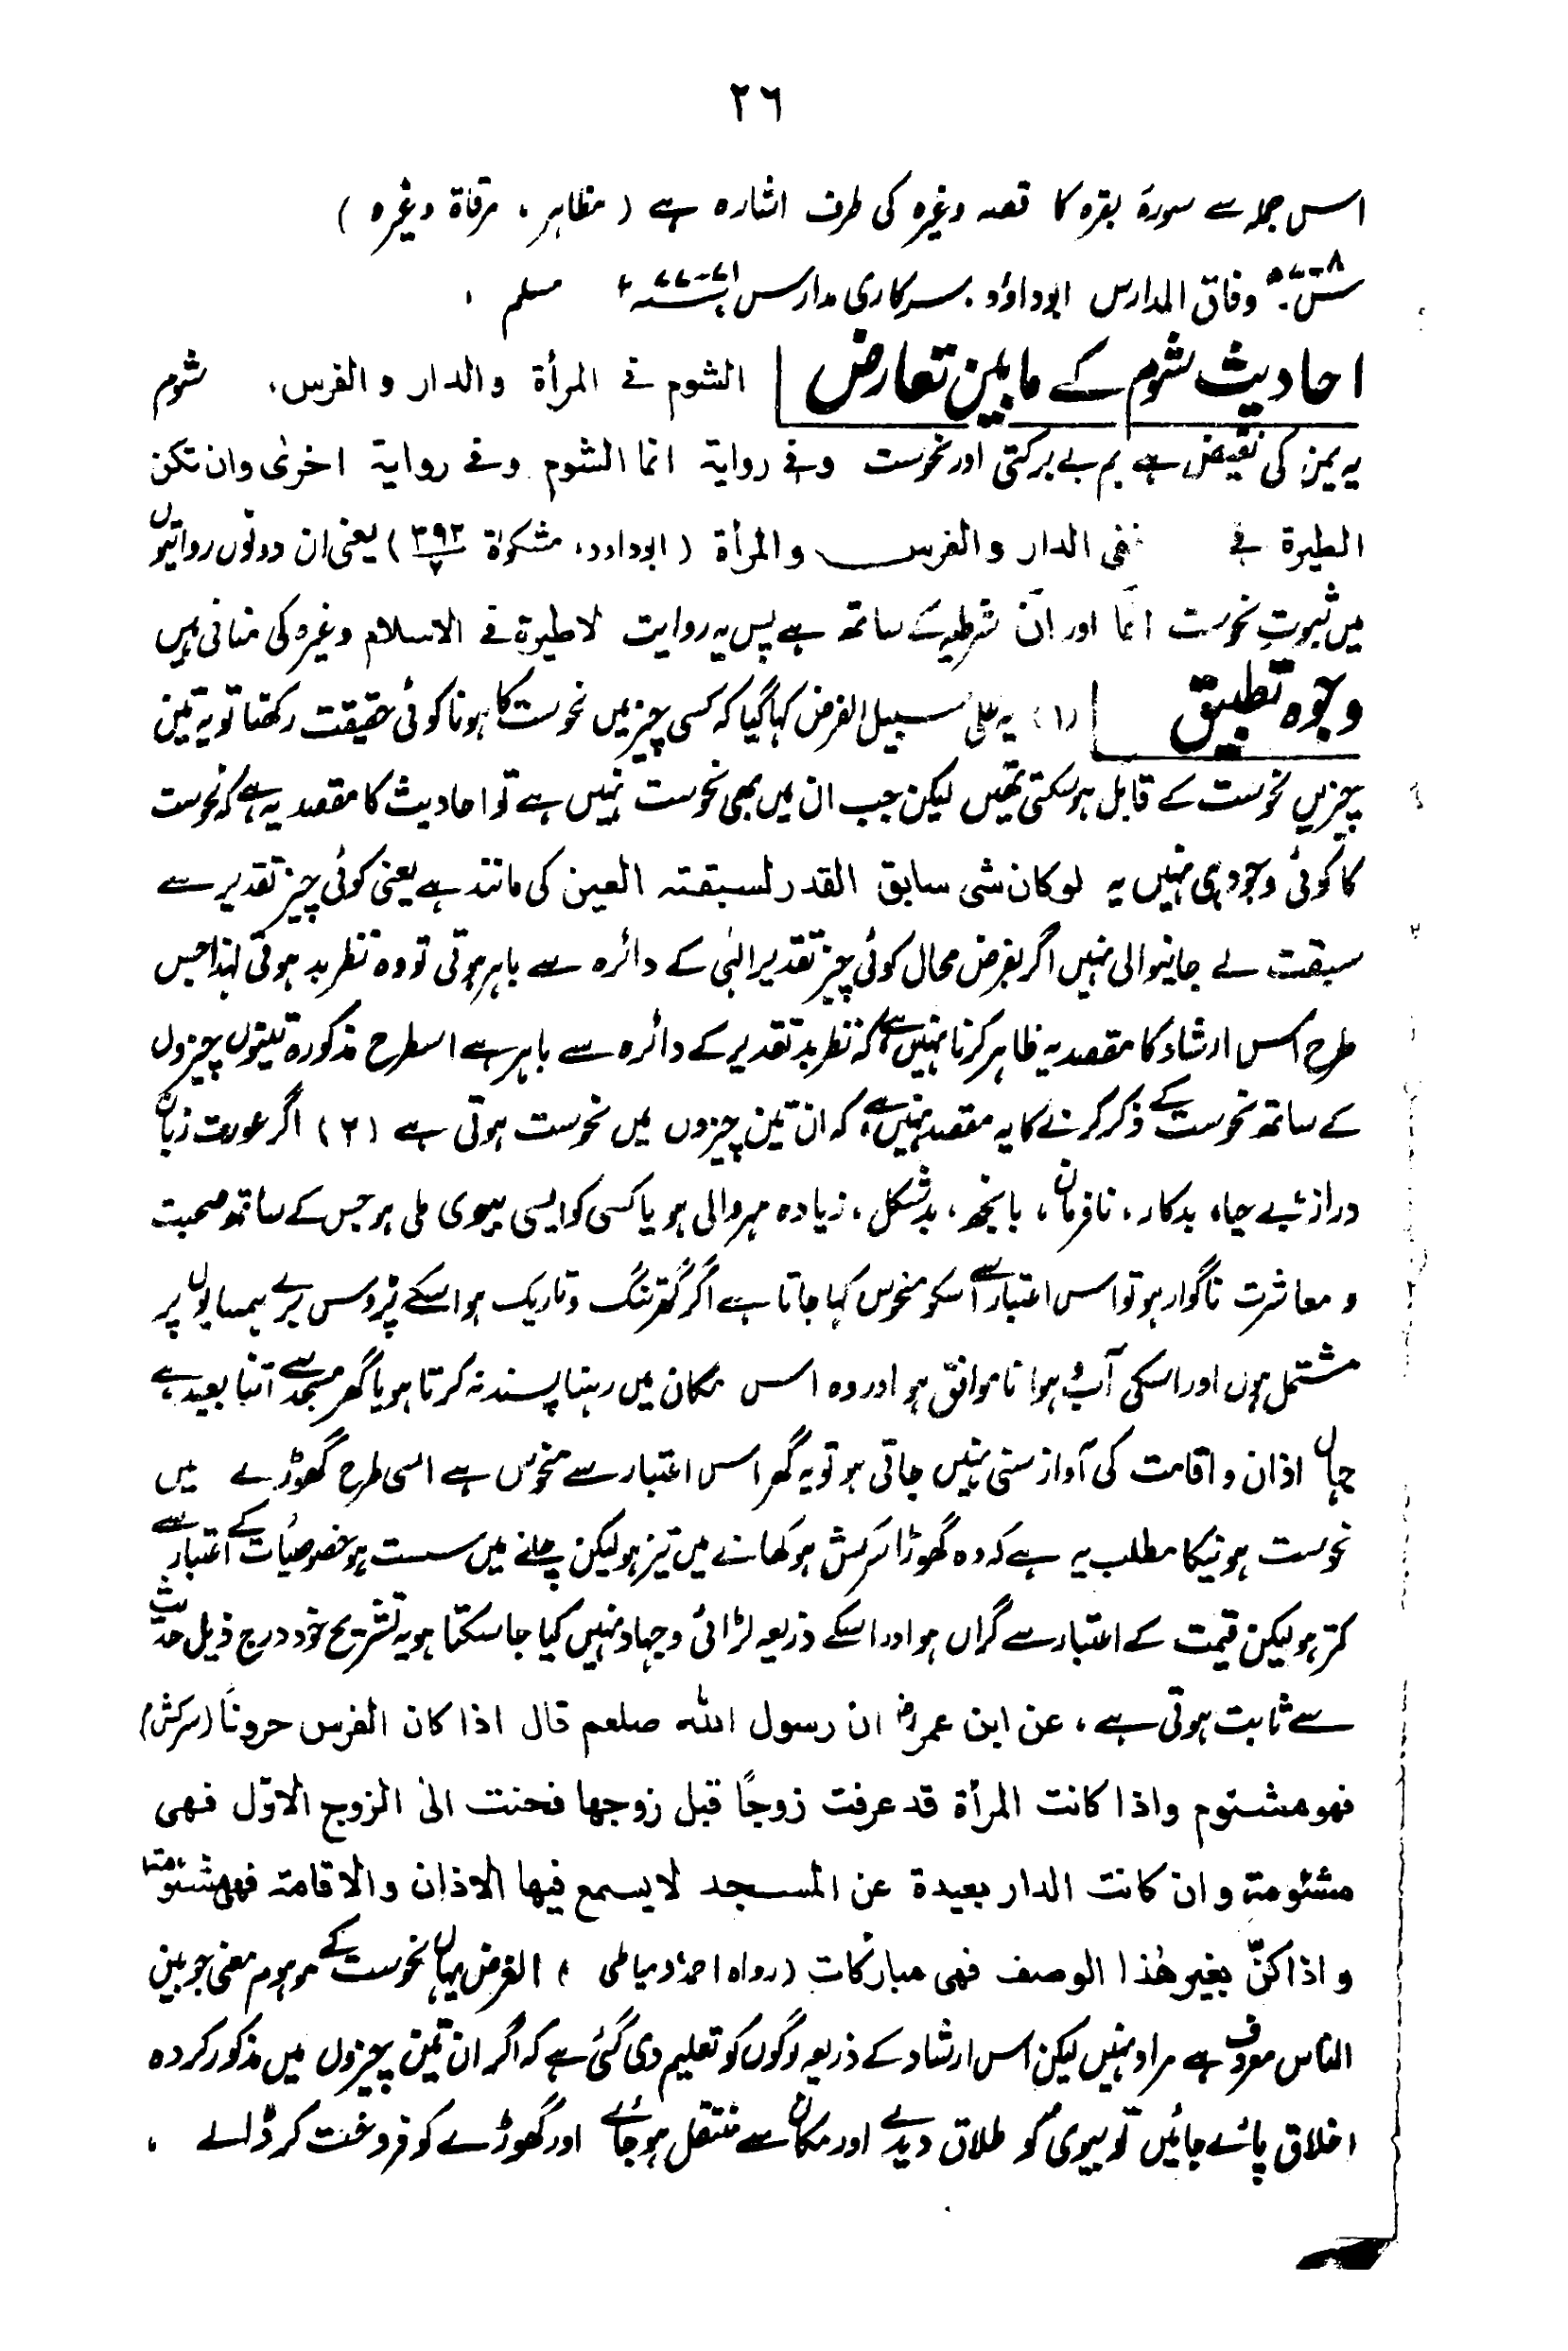 ٢٦
اس جملہ سے سورۂ بقرہ کا قصہ وغیرہ کی طرف اشارہ ہے (مظاہر، مرقاۃ وغیرہ)
وفاق المدارس ابوداؤد. سرکاری مدارس مسلم،
احادیث شوم کے مابین تعارض | الشوم فے المرأة والدار والفرس، شوم
یہ یمن کی نقیض ہے بم بے برکتی اور نحوست وفے روایۃ انما الشوم. وفے روایۃ اخریٰ وان تکن
الطیرۃ فے ففی الدار والفرس والمرأۃ (ابوداود، مشکوٰۃ ٣٩٢) یعنی ان دونوں روایتوں
میں ثبوتِ نحوست انما اور ان شرطیہ کے ساتھ ہے پس یہ روایت لاطیرۃ فے الاسلام وغیرہ کی منافی ہیں
وجوہ تطبیق | (١) یہ علی سبیل الفرض کہا گیا کہ کسی چیز میں نحوست کا ہونا کوئی حقیقت رکھتا تو یہ تین
چیزیں نحوست کے قابل ہوسکتی تھیں لیکن جب ان میں بھی نحوست نہیں ہے تو احادیث کا مقصد یہ ہے کہ نحوست
کا کوئی وجود ہی نہیں یہ لوکان شی سابق القدر لسبقتہ العین کی مانند ہے یعنی کوئی چیز تقدیر سے
سبقت لے جانیوالی نہیں اگر بفرض محال کوئی چیز تقدیر الہٰی کے دائرہ سے باہر ہوتی تو وہ نظر بد ہوتی لہٰذا جس
طرح اس ارشاد کا مقصد یہ ظاہر کرنا نہیں ہے کہ نظر بد تقدیر کے دائرہ سے باہر ہے اسطرح مذکورہ تینوں چیزوں
کے ساتھ نحوست کے ذکر کرنے کا یہ مقصد نہیں ہے کہ ان تین چیزوں میں نحوست ہوتی ہے (٢) اگر عورت زبان
دراز، بے حیا، بدکار، نافرمان، بانجھ، بدشکل، زیادہ مہر والی ہو یا کسی کو ایسی بیوی ملی ہو جس کے ساتھ صحبت
و معاشرت ناگوار ہو تو اس اعتبار سے اسکو منحوس کہا جاتا ہے اگر گھر تنگ و تاریک ہو اسکے پڑوس برے ہمسایوں پر
مشتمل ہوں اور اسکی آب و ہوا ناموافق ہو اور وہ اس مکان میں رہنا پسند نہ کرتا ہو یا گھر مسجد سے اتنا بعید ہے
جہاں اذان و اقامت کی آواز سنی نہیں جاتی ہو تو یہ گھر اس اعتبار سے منحوس ہے اسی طرح گھوڑے میں
نحوست ہونیکا مطلب یہ ہے کہ وہ گھوڑا سرکش ہو کھانے میں تیز ہو لیکن چلنے میں سست ہو خصوصیات کے اعتبار سے
کمتر ہو لیکن قیمت کے اعتبار سے گراں ہو اور اسکے ذریعہ لڑائی و جہاد نہیں کیا جاسکتا ہو یہ تشریح خود درج ذیل حدیث
سے ثابت ہوتی ہے، عن ابن عمرؓ ان رسول اللہ صلعم قال اذا کان الفرس حرونًا (سرکش)
فھو مشئوم واذا کانت المرأۃ قد عرفت زوجًا قبل زوجھا فحنت الیٰ الزوج الاوّل فھی
مشئومۃ وان کانت الدار بعیدۃ عن المسجد لایسمع فیھا الاذان والاقامۃ فھی مشئومۃ
واذا کنّ بغیر ھٰذا الوصف فھی مبارکات (رواہ احمد، دمیاطی) الغرض یہاں نحوست کے موہوم معنی جو بین
الناس معروف ہے مراد نہیں لیکن اس ارشاد کے ذریعہ لوگوں کو تعلیم دی گئی ہے کہ اگر ان تین چیزوں میں مذکور کردہ
اخلاق پائے جائیں تو بیوی کو طلاق دیدے اور مکان سے منتقل ہوجائے اور گھوڑے کو فروخت کر ڈالے،